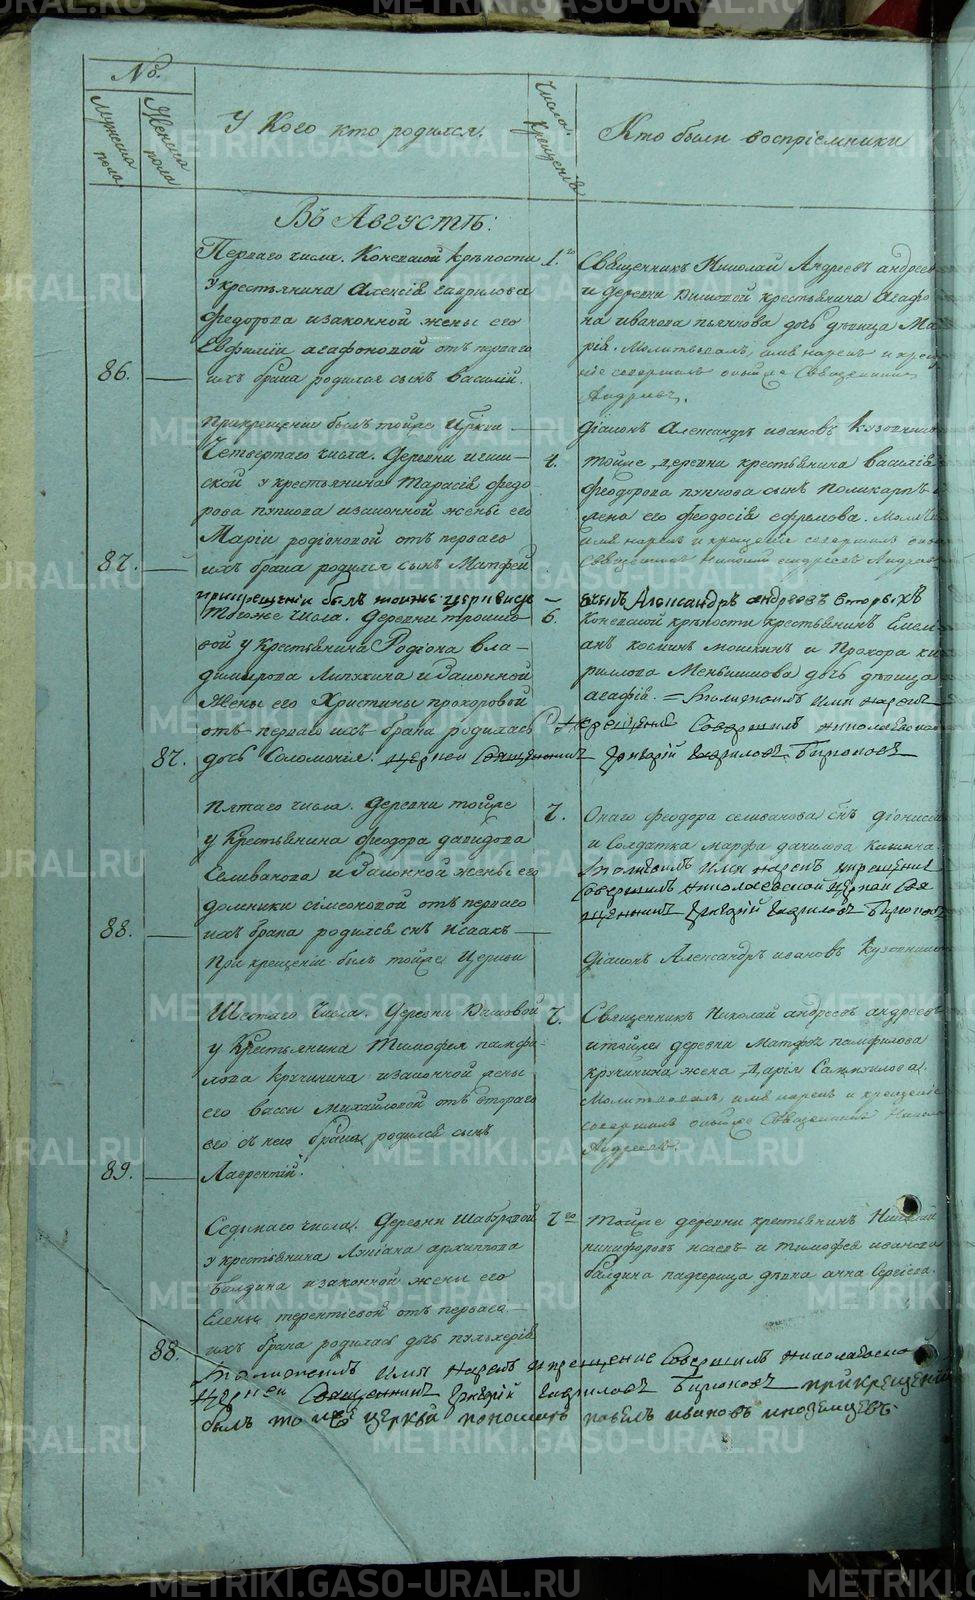 №.
Мужеска пола
Женска пола
У Кого кто родился.
Число Крещенія
Кто были воспріемники
Въ Августѣ:
Перваго числа. Коневской крѣпости
у крестьянина Алексія гаврилова
федорова изаконной жены его
Евфиміи агафоновой отъ перваго
86.
ихъ брака родился сынъ Василій.
1.го
Священникъ Николай Андреевъ андреев
и деревни крестьянина Агафо
на иванова пьянкова дочь дѣвица Ма
рія. Молитвовалъ, имя нарекъ и кре
ніе совершалъ онойже Священникъ
Андреевъ.
При крещеніи былъ тойже Церкви
діаконъ Александръ ивановъ Кузовников
Четвертаго числа. Деревни
ской у крестьянина Тарасія федо
рова пупкова изаконной жены его
Маріи родіоновой отъ перваго
87.
ихъ брака родился сынъ Матфей
4.
тойже деревни крестьянина василія
феодорова пупкова сынъ поликарпъ
жена его феодосія ефремова.
имя нарекъ и крещеніе совершилъ
Священникъ Николай андреевъ Андреев
прикрещеніи былъ тойже церкви
сынъ Александръ андреевъ вторыхъ
Тогоже числа. Деревни
вой у крестьянина Родіона вла-
димирова Липухина и Законной
Жены его Христины прохоровой
отъ перваго ихъ брака родилась
87.
дочь Соломонія.
6.
Коневской крѣпости крестьянинъ Емел
анъ козминъ мошкинъ и Прохора ки
рилова Меньшикова дочь дѣвица
агафія. = Молитвовалъ Имя нарекъ
и Крещеніе Совершилъ николаевской
церкви Священникъ Григорій Гавриловъ Бирюковъ
Пятаго числа. Деревни тойже
у Крестьянина феодора давидова
Селиванова и Законной жены его
домники симеоновой отъ перваго
88.
ихъ брака родился снъ Исаакъ
При крещеніи былъ тойже Церкви
7.
Онаго феодора селиванова снъ діонисій
и Солдатка марфа данилова
Молитвовалъ Имя нарекъ икрещеніе
Совершилъ николаевской церкви Свя
щенникъ Григорій Гавриловъ Бирюковъ
діаконъ Александръ ивановъ Кузовников
Шестаго Числа. Деревни
у Крестьянина Тимофея памфи-
лова кручинина изаконной жены
его вассы михайловой отъ втораго
его с нею брака родился сынъ
89.
Лаврентій.
7.
Священникъ Николай андреевъ андреевъ
итойже деревни Матфея памфилова
кручинина жена Дарія Самуилова.
Молитвовалъ, имя нарекъ и крещеніе
совершилъ онойже Священникъ Никола
Андреевъ.
Седьмаго числа. Деревни Шабуровой
у крестьянина Лукіана архиппова
Балдина изаконной жены его
Елены терентіевой отъ перваго
88.
ихъ брака родилась дочь пульхерія
7го
тойже деревни крестьянинъ Николай
никифоровъ исаевъ и тимофея иванова
балдина падчерица дѣвка анна Сергіева.
Молитвовалъ Имя нарекъ и крещеніе Совершилъ николаевской
церкви Священникъ Григорій Гавриловъ Бирюковъ прикрещеніи
былъ тоя же церкви пономарь павелъ ивановъ иноземцевъ.
METRIKI.GASO-URAL.RU